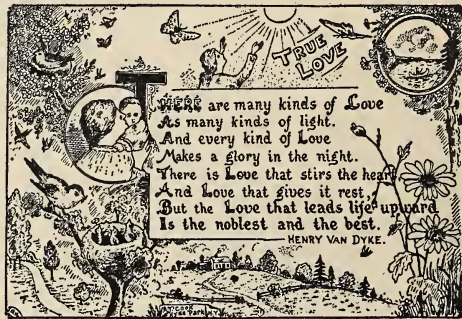 TRUE
LOVE
THERE are many kinds of Love
As many kinds of light.
And every kind of Love
Makes a glory in the night.
There is Love that stirs the heart
And Love that gives it rest,
But the Love that leads life upward
Is the noblest and the best.
HENRY VAN DYKE.